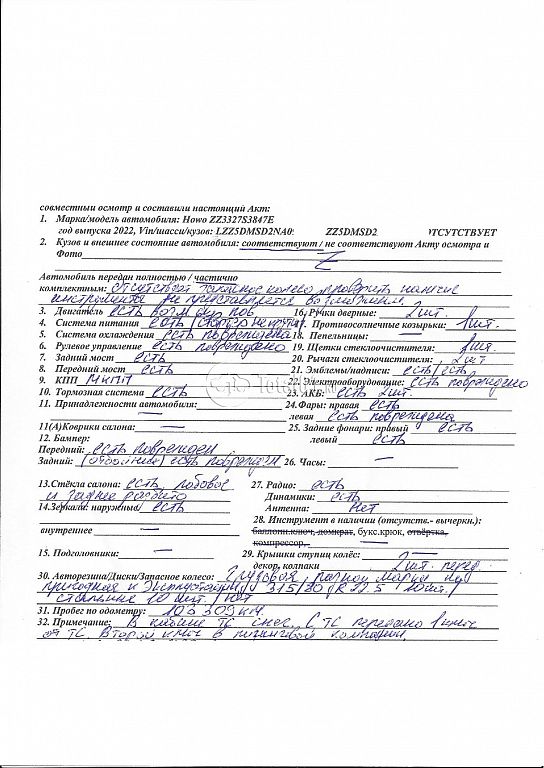 совместный осмотр и составили настоящий Акт:
1. Марка/модель автомобиля: Howo ZZ3327S3847E
год выпуска 2022, Vin/шасси/кузов: LZZ5DMSD2NA0 ZZ5DMSD2 ОТСУТСТВУЕТ
2. Кузов и внешнее состояние автомобиля: соответствуют / не соответствуют Акту осмотра и
Фото Z
Автомобиль передан полностью / частично
комплектным: отсутствует запасное колесо, проверить наличие
инструмента не представляется возможным.
3. Двигатель есть 16. Ручки дверные: 2шт.
4. Система питания есть 17. Противосолнечные козырьки: 1шт.
5. Система охлаждения есть повреждена 18. Пепельницы: —
6. Рулевое управление есть повреждено 19. Щетки стеклоочистителя: шт.
7. Задний мост есть 20. Рычаги стеклоочистителя: 2шт
8. Передний мост есть 21. Эмблемы/надписи: есть/есть
9. КПП МКПП 22. Электрооборудование: есть повреждено
10. Тормозная система есть 23. АКБ: есть 2шт.
11. Принадлежности автомобиля: 24.Фары: правая есть
левая есть повреждена
11(А)Коврики салона: — 25. Задние фонари: правый есть
12. Бампер: левый есть
Передний: есть поврежден
Задний: (отбойник) есть поврежден 26. Часы: —
13.Стёкла салона: есть, лобовое 27. Радио: есть
и заднее разбито Динамики: есть
14.Зеркала: наружные есть Антенна: нет
28. Инструмент в наличии (отсутств.- вычеркн.):
внутреннее — баллонн.ключ, домкрат, букс.крюк, отвёртка,
компрессор, —
15. Подголовники: — 29. Крышки ступиц колёс: —
декор, колпаки 2шт. перед.
30. Авторезина/Диски/Запасное колесо: Грузовая, разной марки
пригодная к эксплуатации 315/80 R22.5 10шт./
стальные 10 шт. / нет
31. Пробег по одометру: 103309 км.
32. Примечание: В кабине ТС снег. С ТС передано 1 ключ
от ТС. Второй ключ в лизинговой компании